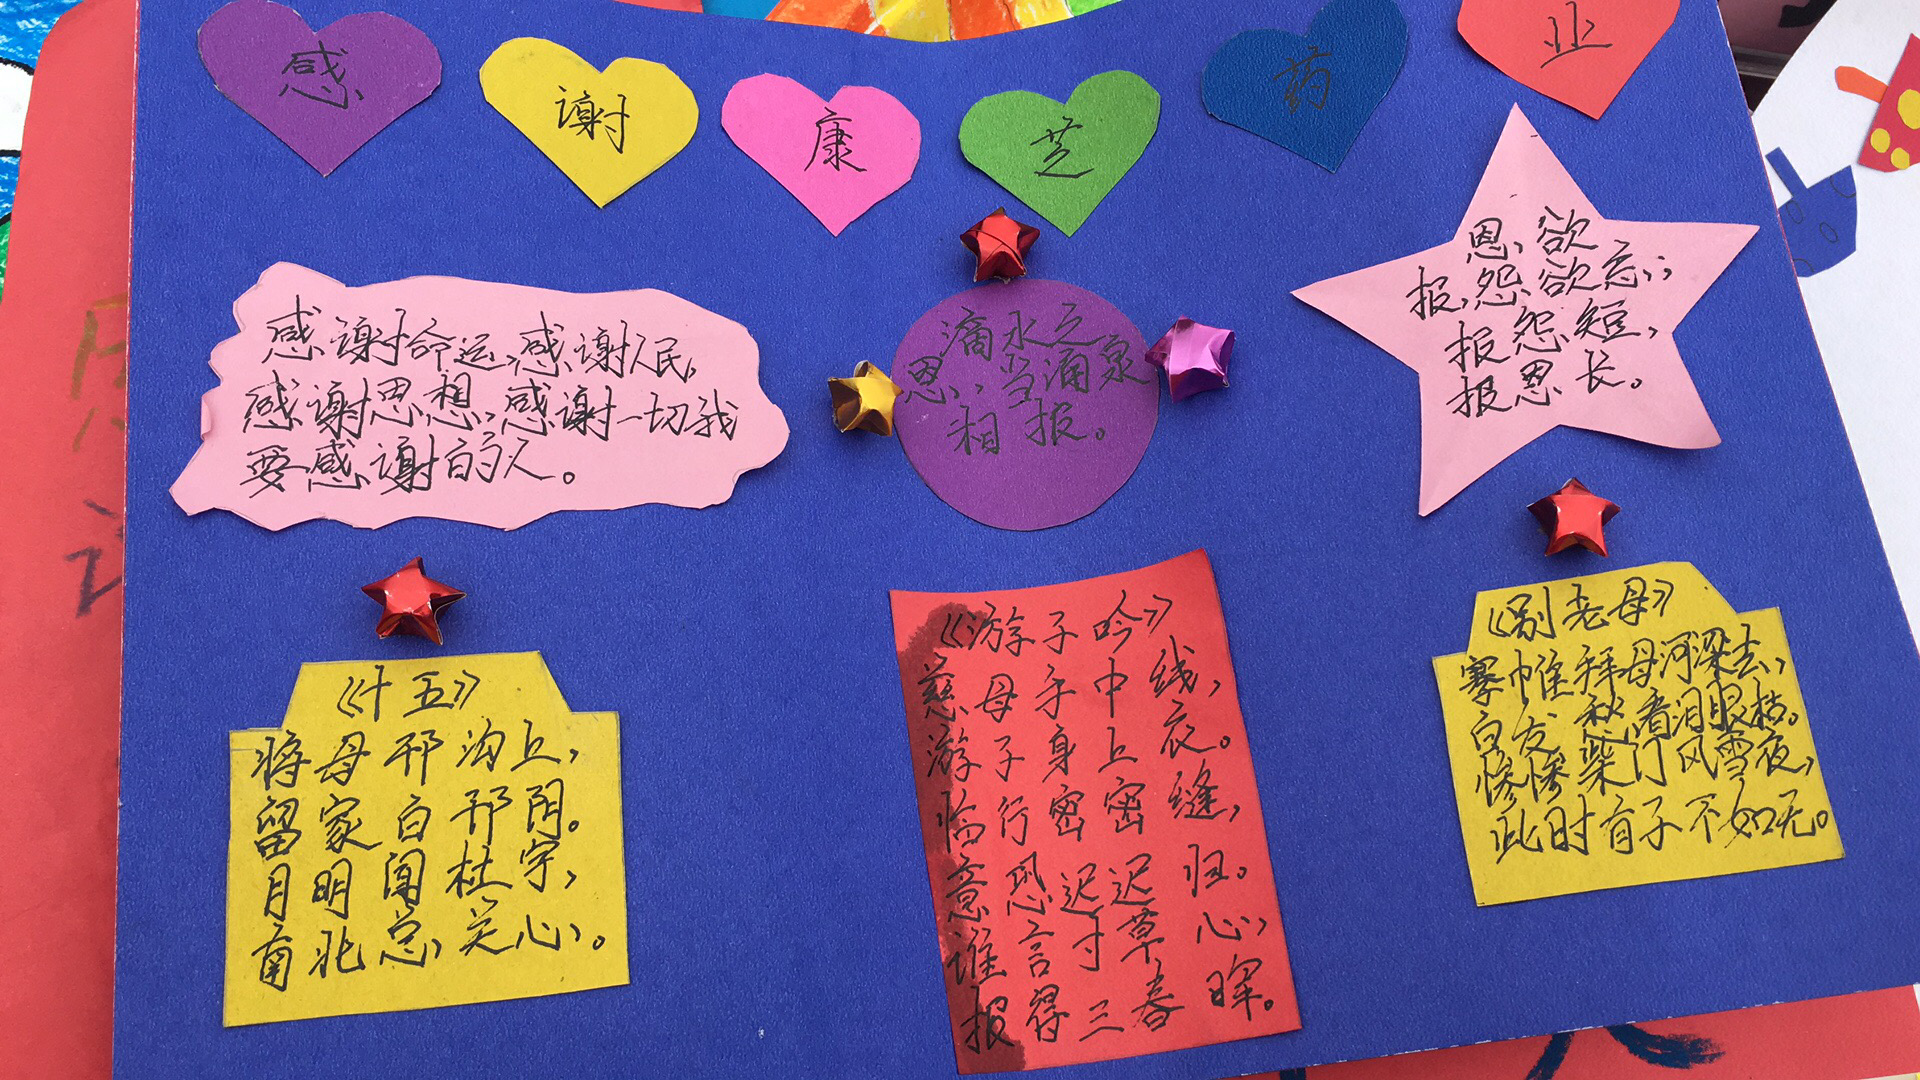 感谢康芝药业
感谢命运,感谢人民,
感谢思想,感谢一切我
要感谢的人。
滴水之
恩,当涌泉
相报。
恩欲
报,怨欲忘;
报怨短,
报恩长。
《十五》
将母邗沟上,
留家白邗阴。
月明闻杜宇,
南北总关心。
《游子吟》
慈母手中线,
游子身上衣。
临行密密缝,
意恐迟迟归。
谁言寸草心,
报得三春晖。
《别老母》
搴帷拜母河深去,
白发愁看泪眼枯。
惨惨柴门风雪夜,
此时有子不如无。